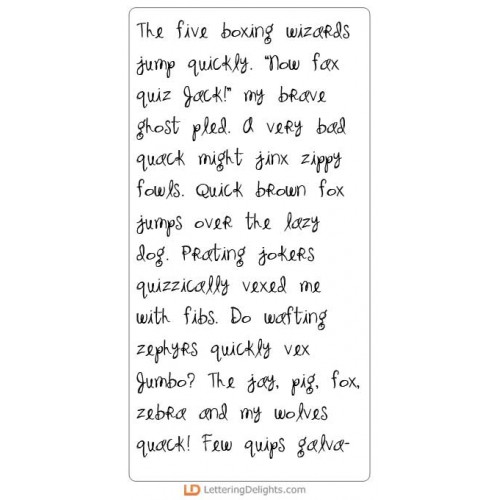 The five boxing wizards
jump quickly. "Now fax
quiz Jack!" my brave
ghost pled. A very bad
quack might jinx zippy
fowls. Quick brown fox
jumps over the lazy
dog. Prating jokers
quizzically vexed me
with fibs. Do wafting
zephyrs quickly vex
Jumbo? The jay, pig, fox,
zebra and my wolves
quack! Few quips galva-
LD LetteringDelights.com